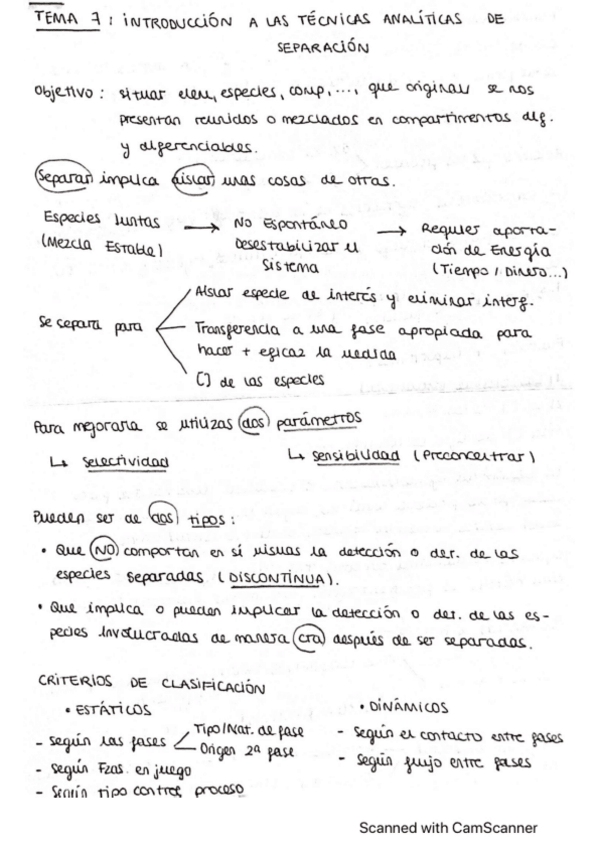 TEMA 7: INTRODUCCIÓN A LAS TÉCNICAS ANALÍTICAS DE
SEPARACIÓN
Objetivo: situar elem, especies, comp, ..., que originan se nos
presentan reunidos o mezclados en compartimentos dif.
y diferenciables.
Separar implica aislar unas cosas de otras.
Especies Juntas → No Espontáneo → Requier aporta-
(Mezcla Estable) Desestabilizar el ción de Energía
Sistema (Tiempo / Dinero...)
Se separa para
Aislar especie de interés y eliminar interf.
Transferencia a una fase apropiada para
hacer + eficaz la medida
[] de las especies
Para mejorarla se utilizas dos parámetros
↳ Selectividad ↳ Sensibilidad (Preconcentrar)
Pueden ser de dos tipos:
• Que NO comportan en sí mismas la detección o det. de las
especies separadas (DISCONTINUA).
• Que implica o pueden implicar la detección o det. de las es-
pecies involucradas de manera cta después de ser separadas.
CRITERIOS DE CLASIFICACIÓN
• ESTÁTICOS • DINÁMICOS
- Según las fases Tipo/Nat. de fase - Según el contacto entre fases
Origen 2ª fase - Según flujo entre fases
- Según Fzas. en juego
- Según tipo control proceso
Scanned with CamScanner